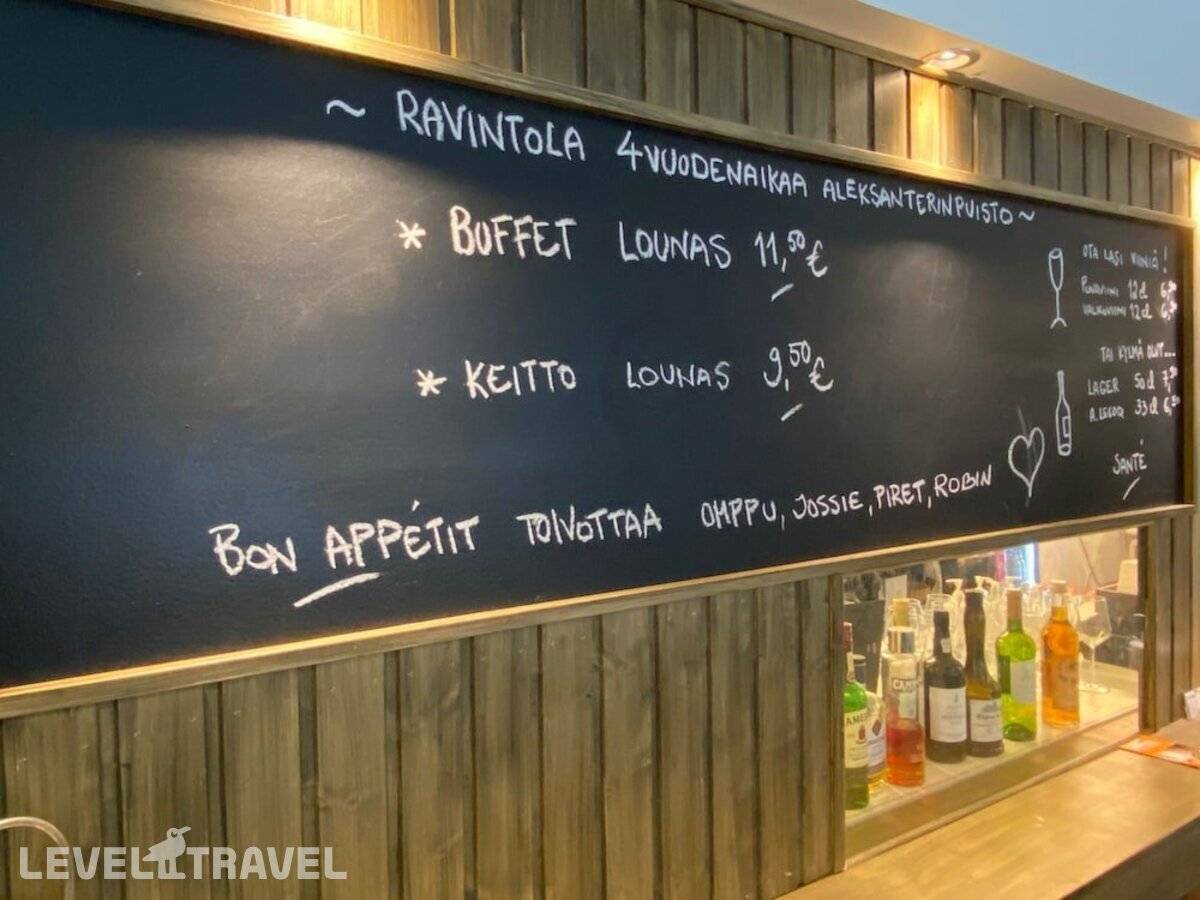 ~ RAVINTOLA 4VUODENAIKAA ALEKSANTERINPUISTO ~
* BUFFET LOUNAS 11,50 €
* KEITTO LOUNAS 9,50 €
BON APPÉTIT TOIVOTTAA OMPPU, JOSSIE, PIRET, ROBIN
OTA LASI VIINIÄ !
PUNAVIINI 12 cl
VALKOVIINI 12 cl
TAI KYLMÄ OLUT...
LAGER 50 cl 7,50
A. LECOQ 33 cl 6,50
SANTÉ
LEVEL TRAVEL